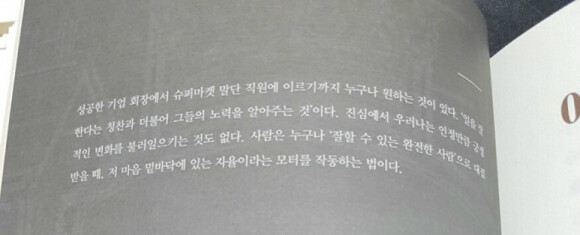 성공한 기업 회장에서 슈퍼마켓 말단 직원에 이르기까지 누구나 원하는 것이 있다. '일을 잘
한다는 칭찬과 더불어 그들의 노력을 알아주는 것'이다. 진심에서 우러나는 인정만큼 긍정
적인 변화를 불러일으키는 것도 없다. 사람은 누구나 '잘할 수 있는 완전한 사람'으로 대접
받을 때, 저 마음 밑바닥에 있는 자율이라는 모터를 작동하는 법이다.